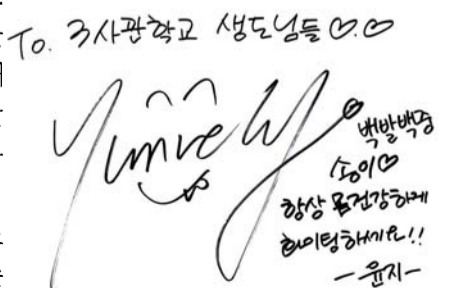 To. 3사관학교 생도님들♡.♡
백발백중
송이♡
항상 몸건강하게
화이팅하세요!!
-윤지-